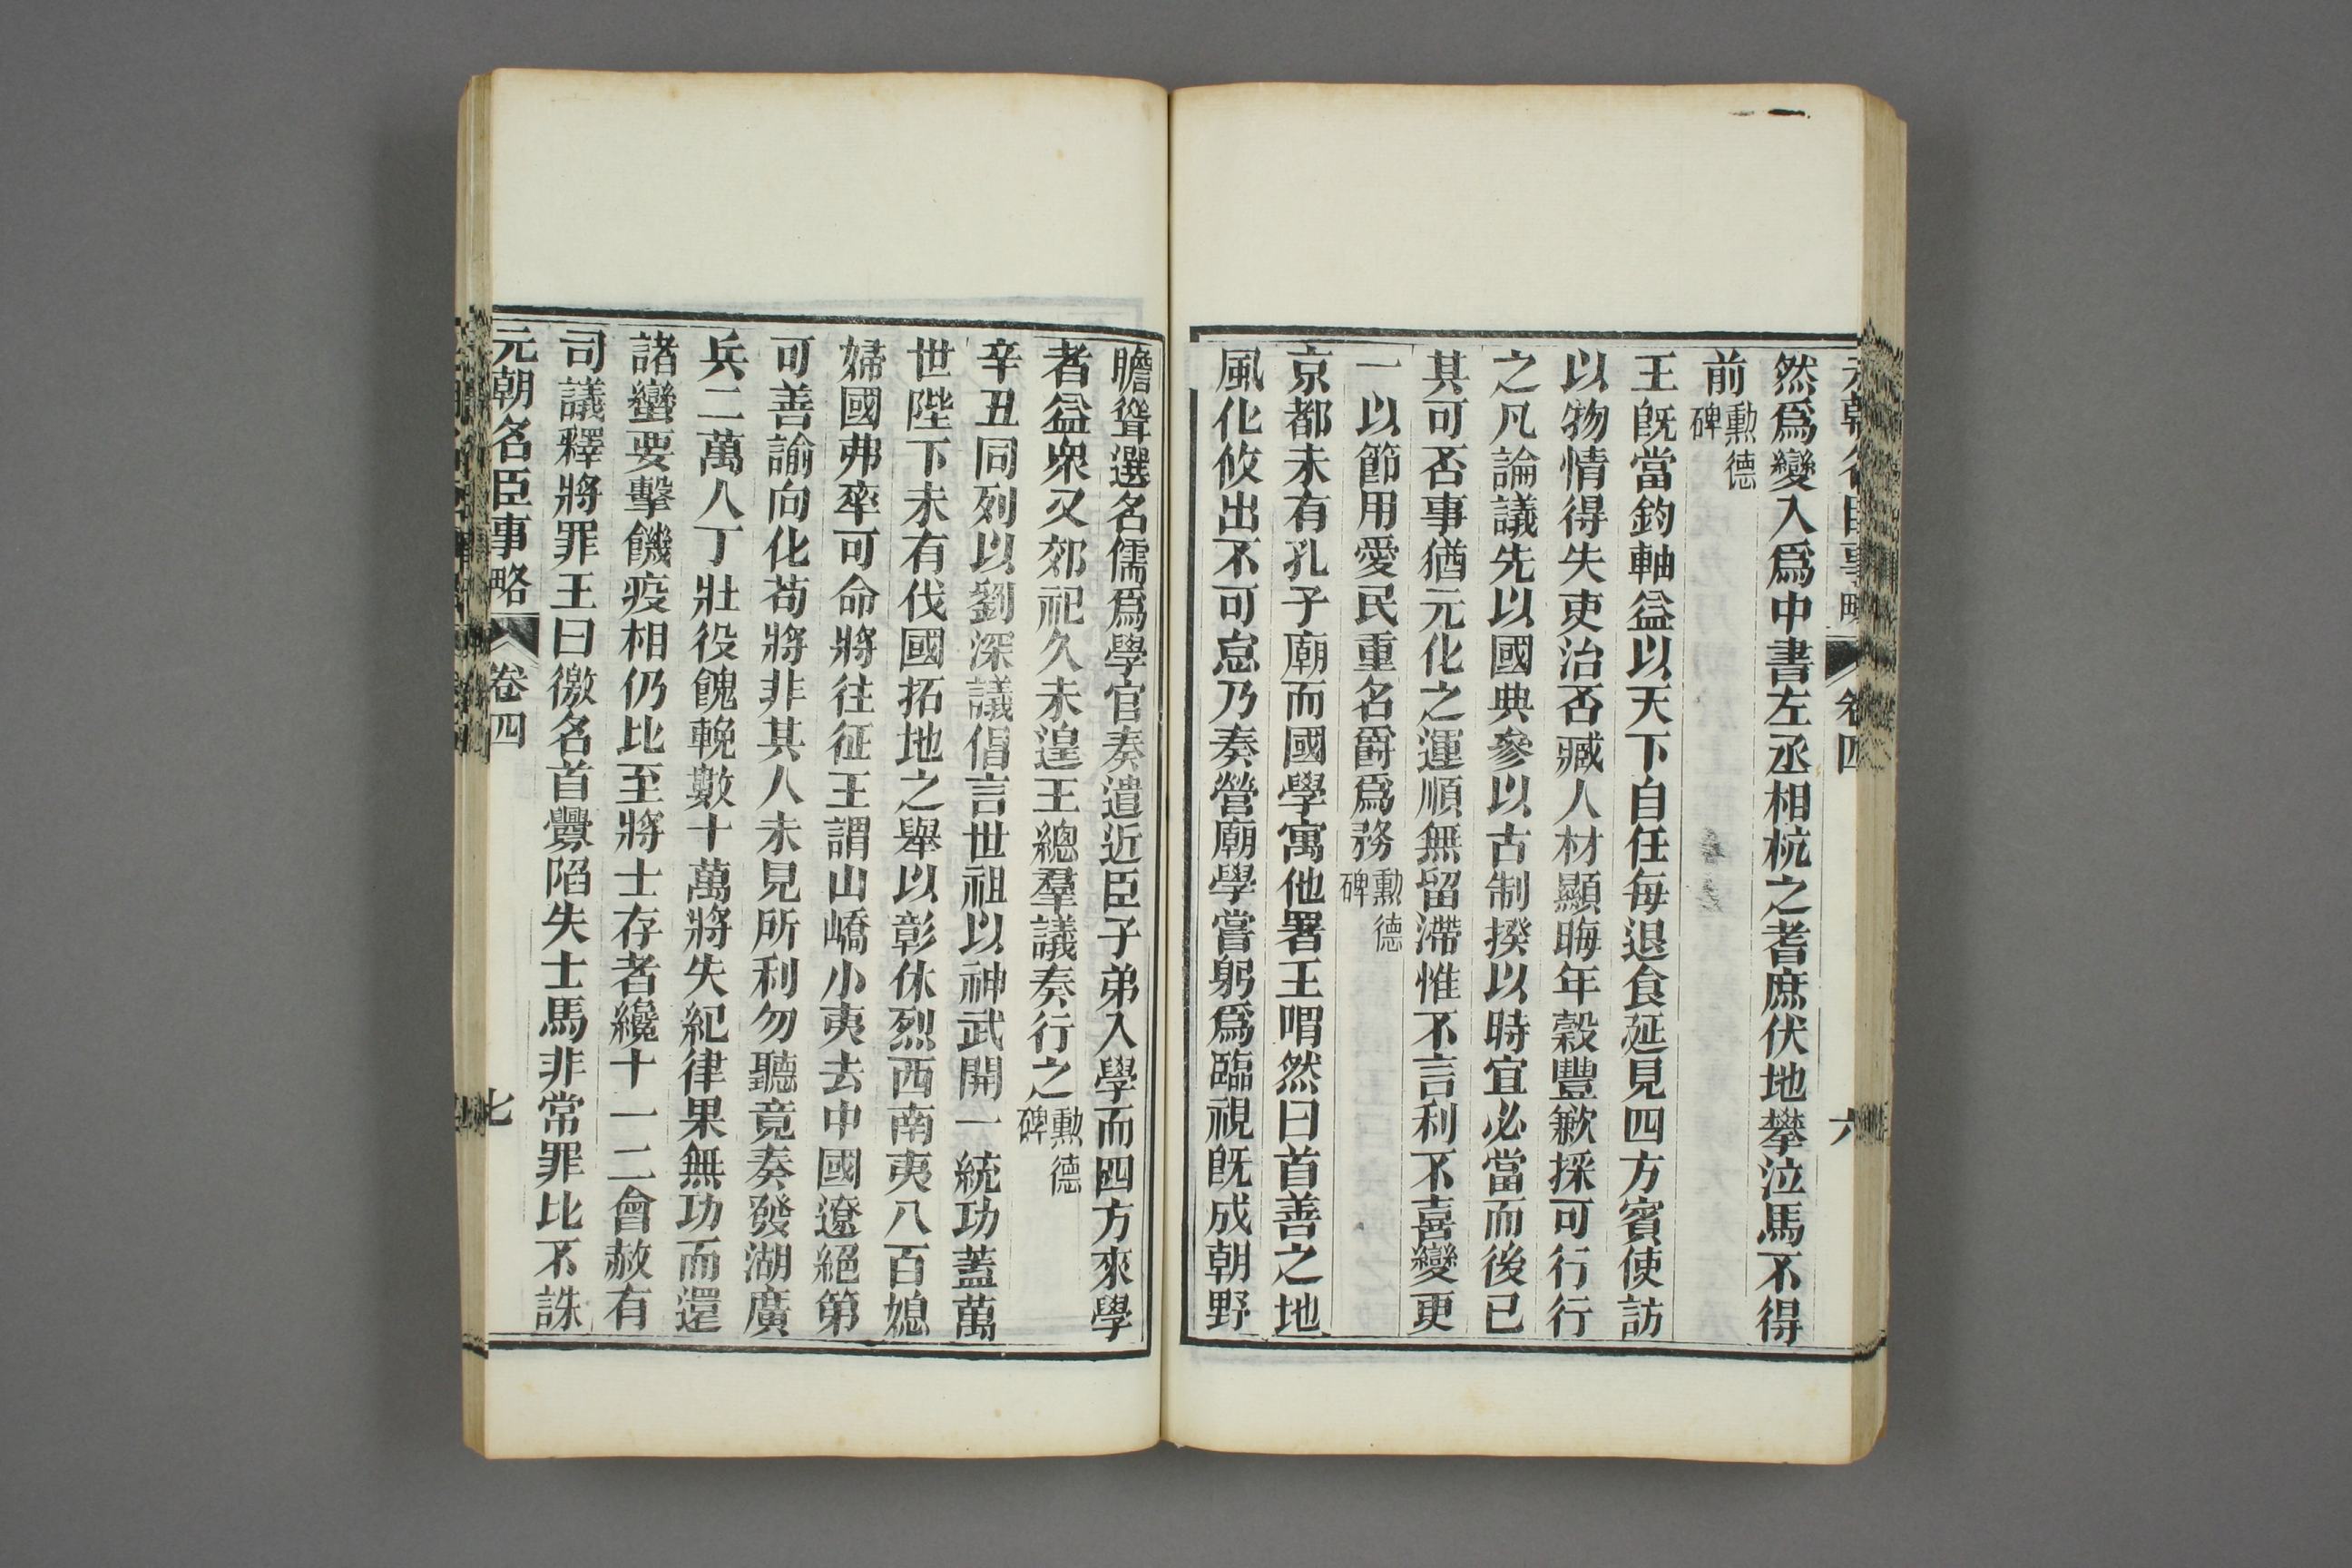 元朝名臣事略 卷四 六
然爲變入爲中書左丞相杭之耆庶伏地攀泣馬不得
前勳德碑
王旣當鈞軸益以天下自任每退食延見四方賓使訪
以物情得失吏治否臧人材顯晦年穀豐歉採可行行
之凡論議先以國典參以古制揆以時宜必當而後已
其可否事猶元化之運順無留滯惟不言利不喜變更
一以節用愛民重名爵爲務勳德碑
京都未有孔子廟而國學寓他署王喟然曰首善之地
風化攸出不可怠乃奏營廟學嘗躬爲臨視旣成朝野
瞻聳選名儒爲學官奏遣近臣子弟入學而四方來學
者益衆又郊祀久未遑王總羣議奏行之勳德碑
辛丑同列以劉深議倡言世祖以神武開一統功蓋萬
世陛下未有伐國拓地之舉以彰休烈西南夷八百媳
婦國弗率可命將往征王謂山嶠小夷去中國遼絕第
可善諭向化苟將非其人未見所利勿聽竟奏發湖廣
兵二萬人丁壯役餽輓數十萬將失紀律果無功而還
諸蠻要擊饑疫相仍比至將士存者纔十一二會赦有
司議釋將罪王曰徼名首釁陷失士馬非常罪比不誅
元朝名臣事略 卷四 七